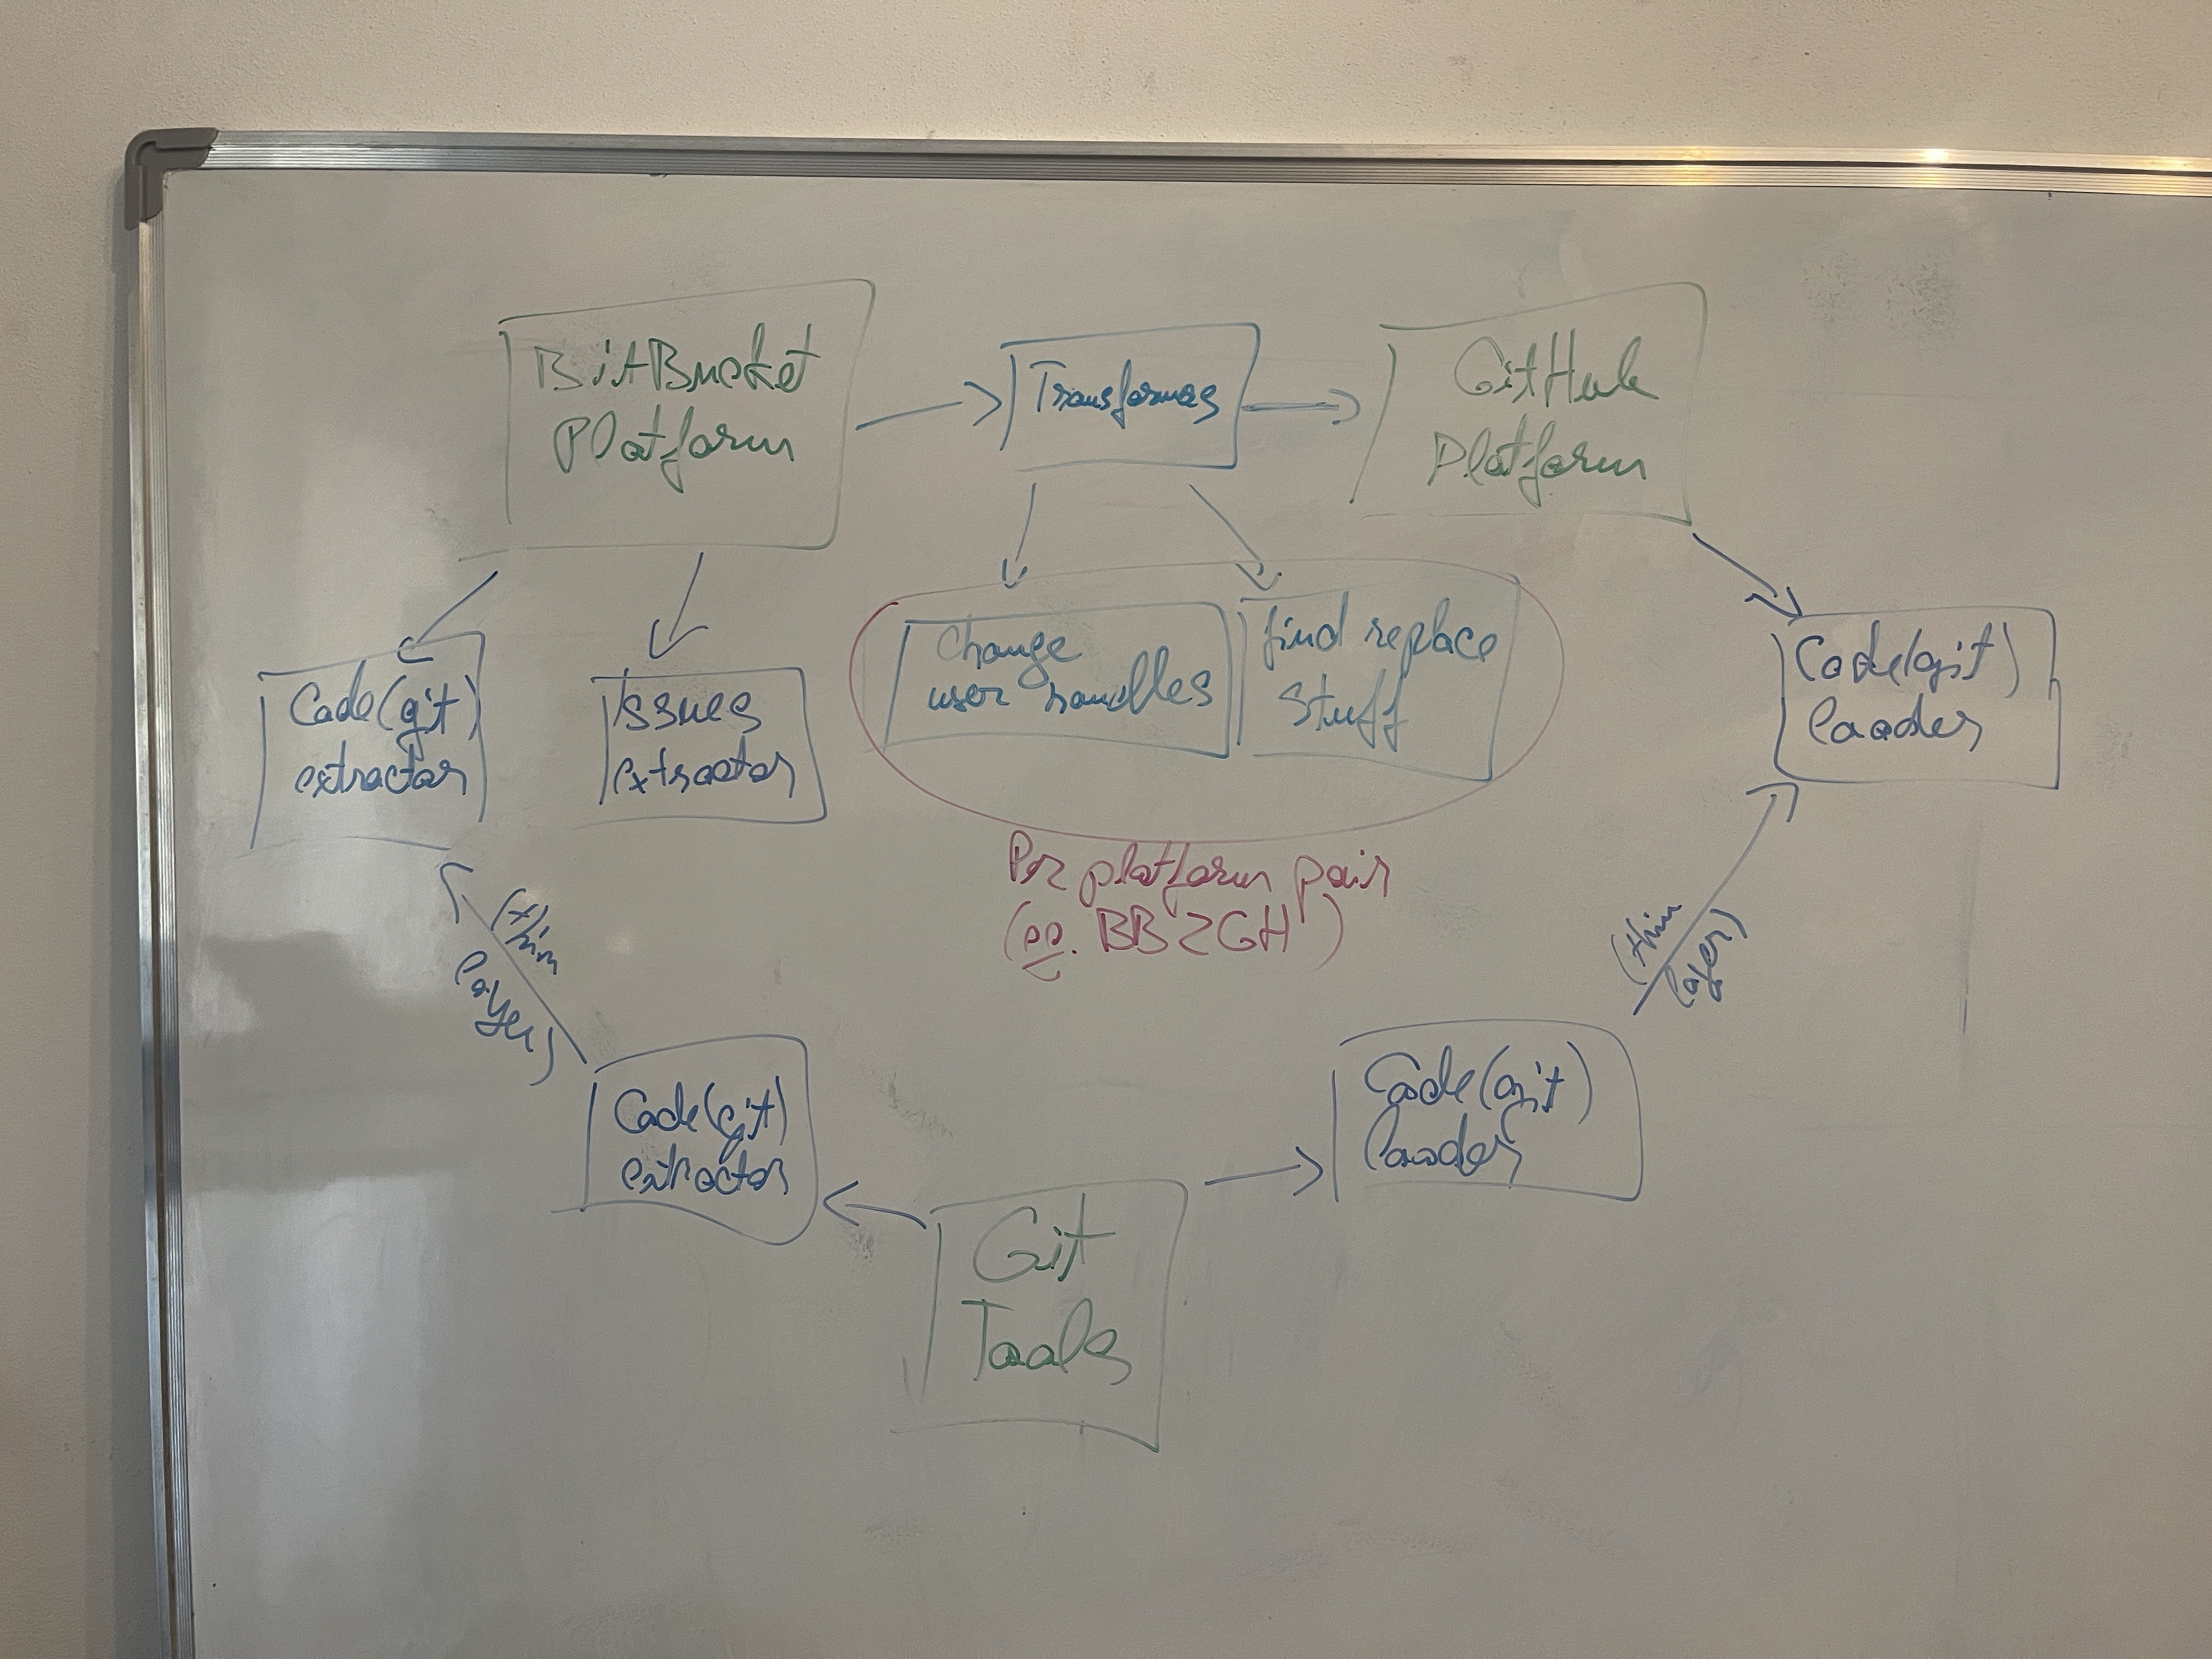 BitBucket
Platform
Transformers
GitHub
Platform
Code(git)
extractor
Issues
extractor
Change
user handles
find replace
stuff
Code(git)
loader
Per platform pair
(eg. BB2GH)
(thin
layer)
(thin
layer)
Code(git)
extractor
Code(git)
loader
Git
Tools